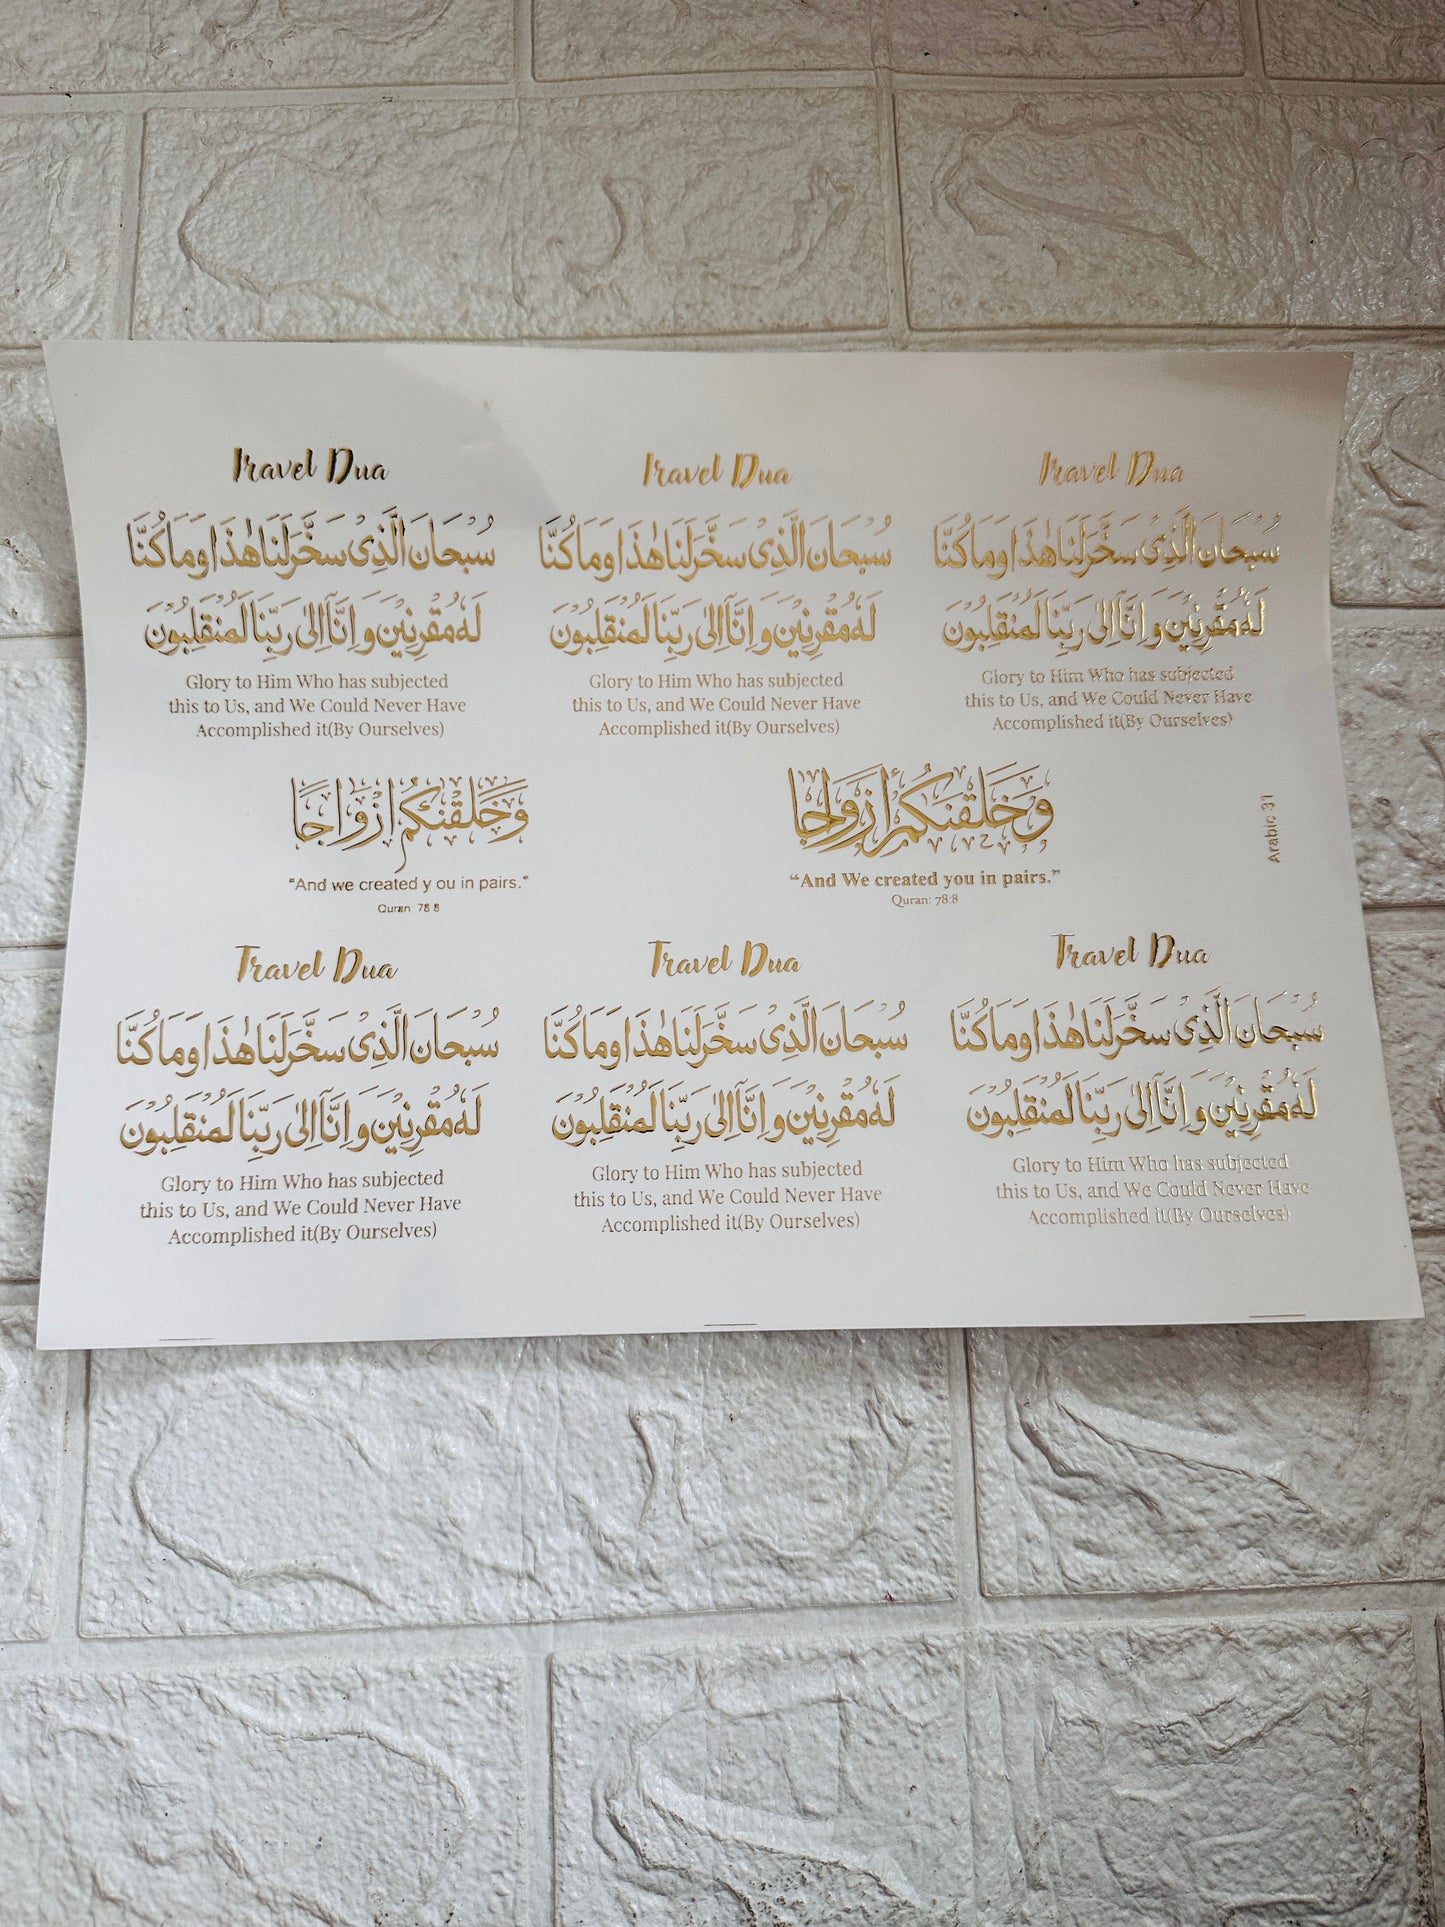 Travel Dua
سُبْحَانَ الَّذِىْ سَخَّرَ لَنَا هٰذَا وَمَا كُنَّا
لَهٗ مُقْرِنِيْنَ وَ اِنَّآ اِلٰى رَبِّنَا لَمُنْقَلِبُوْنَ
Glory to Him Who has subjected
this to Us, and We Could Never Have
Accomplished it(By Ourselves)
Travel Dua
سُبْحَانَ الَّذِىْ سَخَّرَ لَنَا هٰذَا وَمَا كُنَّا
لَهٗ مُقْرِنِيْنَ وَ اِنَّآ اِلٰى رَبِّنَا لَمُنْقَلِبُوْنَ
Glory to Him Who has subjected
this to Us, and We Could Never Have
Accomplished it(By Ourselves)
Travel Dua
سُبْحَانَ الَّذِىْ سَخَّرَ لَنَا هٰذَا وَمَا كُنَّا
لَهٗ مُقْرِنِيْنَ وَ اِنَّآ اِلٰى رَبِّنَا لَمُنْقَلِبُوْنَ
Glory to Him Who has subjected
this to Us, and We Could Never Have
Accomplished it(By Ourselves)
وَخَلَقْنَٰكُمْ أَزْوَاجًا
“And we created y ou in pairs.”
Quran 78:8
وَخَلَقْنَٰكُمْ أَزْوَاجًا
“And We created you in pairs.”
Quran: 78:8
Arabic 31
Travel Dua
سُبْحَانَ الَّذِىْ سَخَّرَ لَنَا هٰذَا وَمَا كُنَّا
لَهٗ مُقْرِنِيْنَ وَ اِنَّآ اِلٰى رَبِّنَا لَمُنْقَلِبُوْنَ
Glory to Him Who has subjected
this to Us, and We Could Never Have
Accomplished it(By Ourselves)
Travel Dua
سُبْحَانَ الَّذِىْ سَخَّرَ لَنَا هٰذَا وَمَا كُنَّا
لَهٗ مُقْرِنِيْنَ وَ اِنَّآ اِلٰى رَبِّنَا لَمُنْقَلِبُوْنَ
Glory to Him Who has subjected
this to Us, and We Could Never Have
Accomplished it(By Ourselves)
Travel Dua
سُبْحَانَ الَّذِىْ سَخَّرَ لَنَا هٰذَا وَمَا كُنَّا
لَهٗ مُقْرِنِيْنَ وَ اِنَّآ اِلٰى رَبِّنَا لَمُنْقَلِبُوْنَ
Glory to Him Who has subjected
this to Us, and We Could Never Have
Accomplished it(By Ourselves)